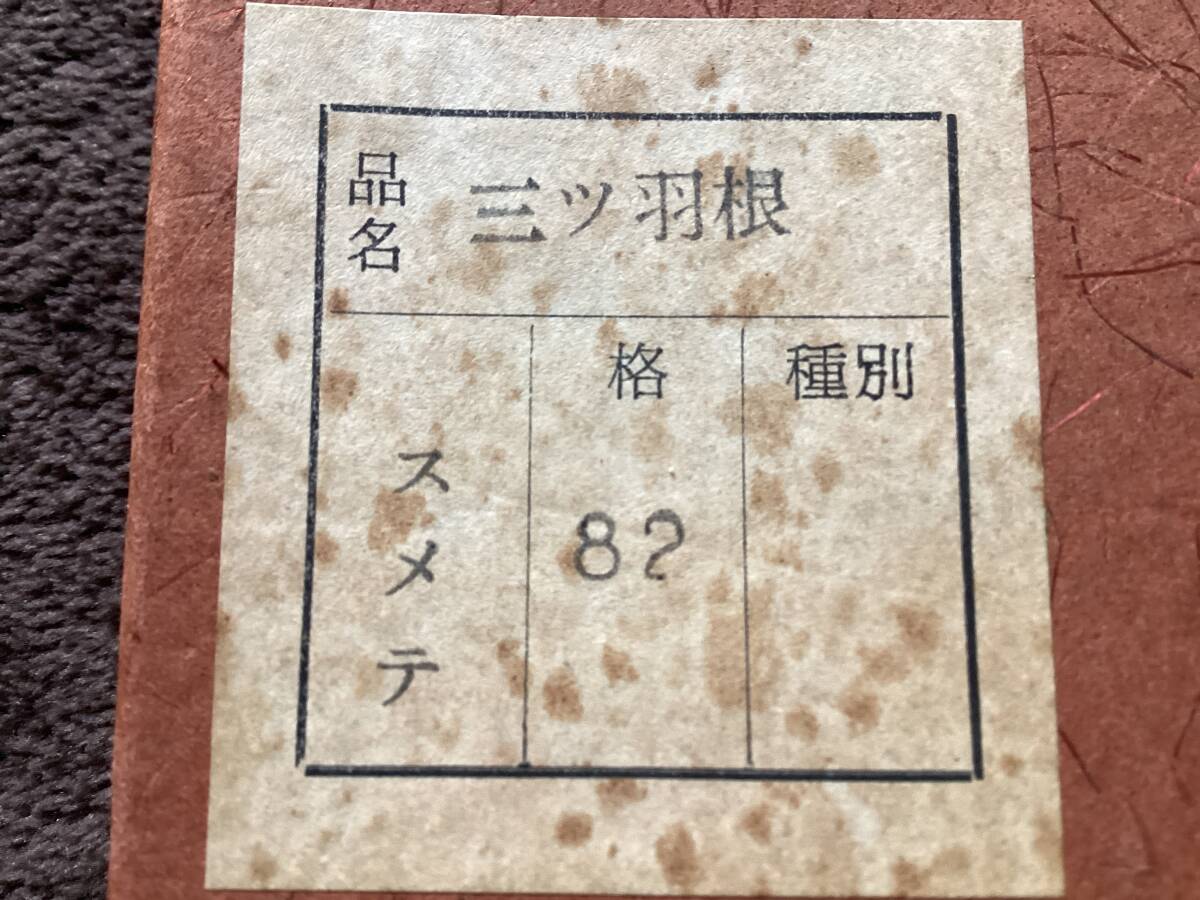 品名 三ツ羽根
種別
格 82
スメテ